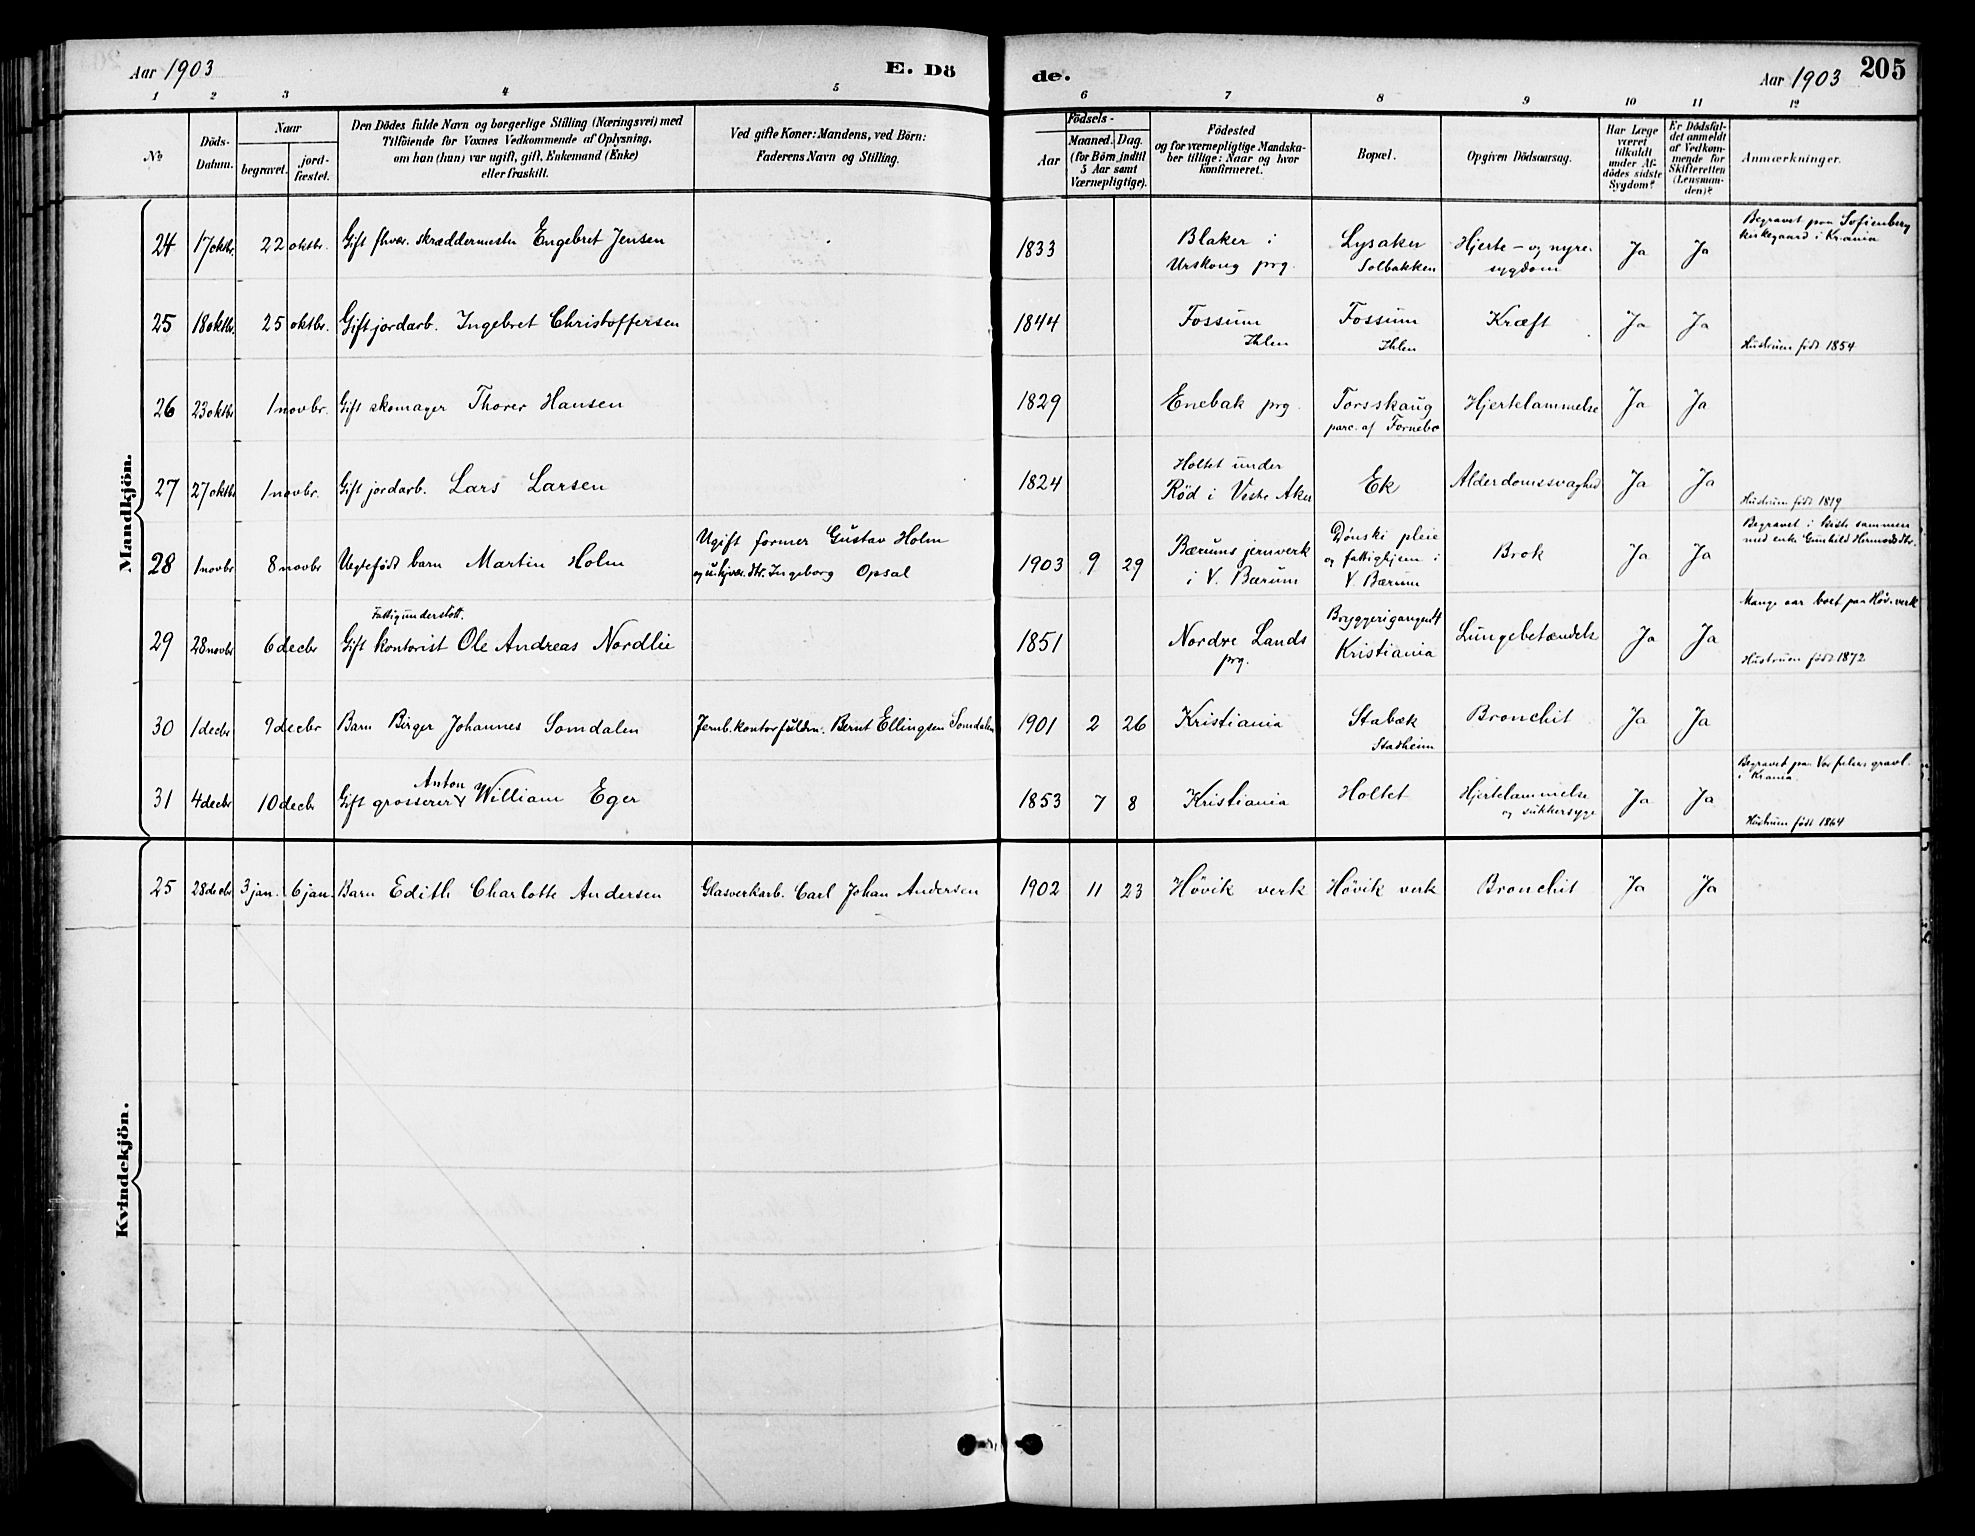 Aar 1903
E. Dö
de.
Aar 1903
205
1 2 3 4 5 6 7 8 9 10 11 12
No
Döds-
Datum.
Naar
begravet.
jord-
fæstet.
Den Dödes fulde Navn og borgerlige Stilling (Næringsvei) med
Tilföiende for Voxnes Vedkommende af Oplysning,
om han (hun) var ugift, gift, Enkemand (Enke)
eller fraskilt.
Ved gifte Koner: Mandens, ved Börn:
Faderens Navn og Stilling.
Födsels-
Aar
Maaned. Dag.
(for Börn indtil
5 Aar samt
Værnepligtige).
Födested
og for værnepligtige Mandska-
ber tillige: Naar og hvor
konfirmeret.
Bopæl.
Opgiven Dödsaarsag.
Har Læge
været
tilkaldt
under Af-
dödes sidste
Sygdom?
Er Dödsfal-
det anmeldt
af Vedkom-
mende for
Skifteretten
(Lensman-
den)?
Anmærkninger.
Mandkjön.
24 17 oktbr. 22 oktbr. Gift fhvær. skræddermester Engebret Jensen 1833 Blaker i Lysaker Hjerte- og nyre- Ja Ja Begravet paa Sofienberg
Urskoug prg. Solbakken sygdom kirkegaard i Krania
25 18 oktbr. 25 oktbr. Gift jordarb. Ingebret Christoffersen 1844 Fossum Fossum Kræft Ja Ja
Ihlen Ihlen Hustruen født 1854
26 23 oktbr 1 novbr. Gift skomager Thorer Hansen 1829 Enebak prg. Torsskaug Hjertelammelse Ja Ja
parc. af Fornebo
27 27 oktbr 1 novbr. Gift jordarb. Lars Larsen 1824 Holtet under Ek Alderdomssvaghed Ja Ja
Rød i Vestre Aker Hustruen født 1819
28 1 novbr 8 novbr Uegtefødt barn Martin Holm Ugift former Gustav Holm 1903 9 29 Bærums jernverk Dønski pleie Brok Ja Ja Begravet i kiste sammen
og Ingeborg Opsal i V. Bærum og fattighjem i med enke Gunhild Hermodsdtr.
V. Bærum
Fattigunderstøtt.
29 28 novbr 6 decbr Gift kontorist Ole Andreas Nordlie 1851 Nordre Lands Kristiania Lungebetændelse Ja Ja Mange aar boet paa Høv. verk
prg. Hustruen født 1872
30 1 decbr 9 decbr Barn Birger Johannes Somdalen Jernb.kontorfuldm. Bernt Ellingsen Somdalen 1901 2 26 Kristiania Stabæk Bronchit Ja Ja
Stadheim
Anton
31 4 decbr 10 decbr Gift grosserer William Eger 1853 7 8 Kristiania Holtet Hjertelammelse Ja Ja Begravet paa Vor frelsers gravl.
og sukkersyge i Krania.
Hustruen født 1864
Kvindekjön.
25 28 decbr 3 jan. 6 jan. Barn Edith Charlotte Andersen Glasverkarb. Carl Johan Andersen 1902 11 23 Høvik verk Høvik verk Bronchit Ja Ja